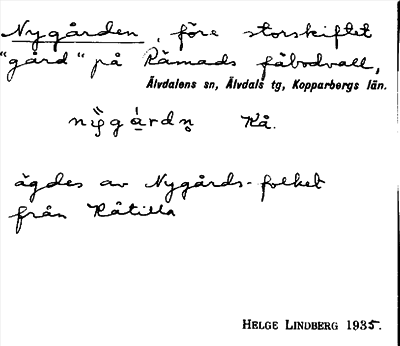 Nygården, före storskiftet
"gård" på Råmads fäbodvall,
Älvdalens sn, Älvdals tg, Kopparbergs län.
Kå.
ägdes av Nygårds-folket
från Kåtilla
HELGE LINDBERG 1935.